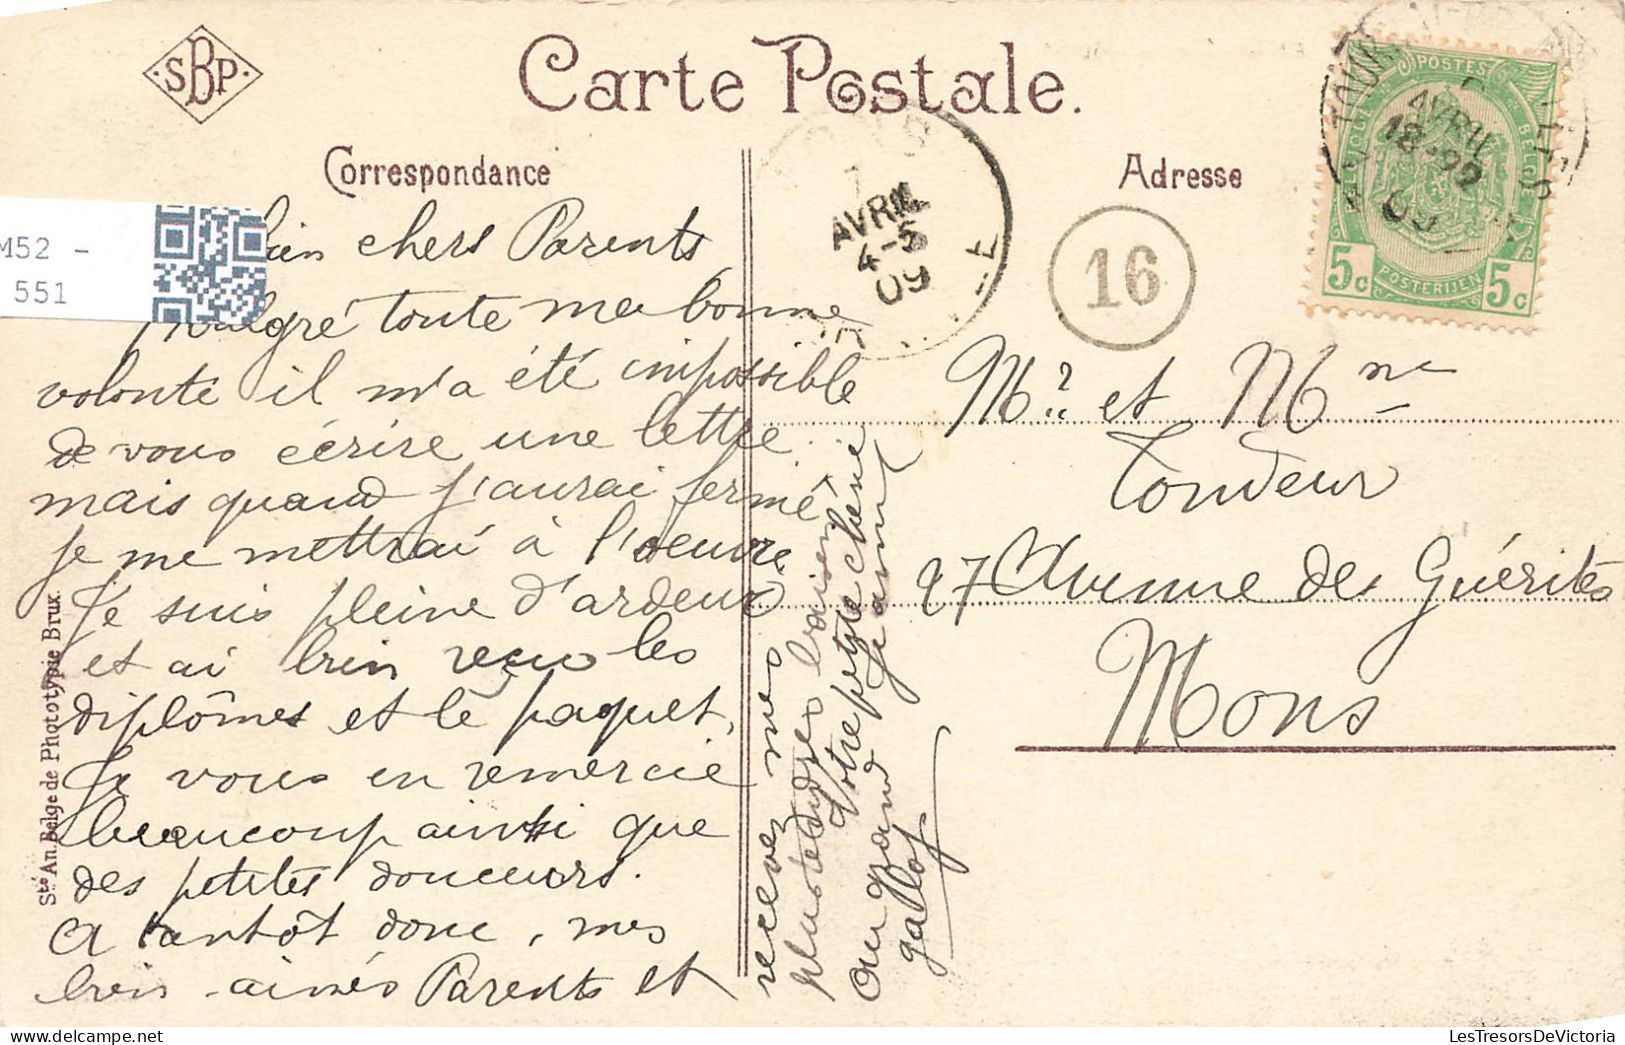 SBP
Carte Postale.
Correspondance
Adresse
M52 -
551
chers Parents
Malgré toute ma bonne
volonté il m'a été impossible
de vous écrire une lettre
mais quand j'aurai fermé
je me mettrai à l'oeuvre.
Je suis pleine d'ardeur
et ai bien reçu les
diplômes et le paquet.
Je vous en remercie
beaucoup ainsi que
des petites douceurs.
A tantôt donc, mes
bien-aimés Parents et
recevez mes
plus tendres baisers
Votre petite chérie
Jeanne
au grand
galop
Sté An. Belge de Phototypie Brux.
AVRIL
4-5
09
16
POSTES
BELGIQUE
BELGIË
POSTERIJEN
5c 5c
AVRIL
18-22
09
Mr et Mme
Tondeur
97 Avenue des Guérites
Mons
LesTresorsDeVictoria.com